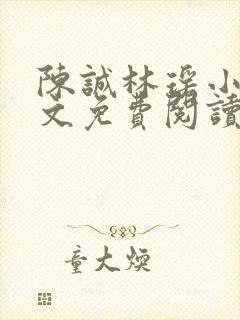 陳誠林瑤小
文免費閱讀
童大煥